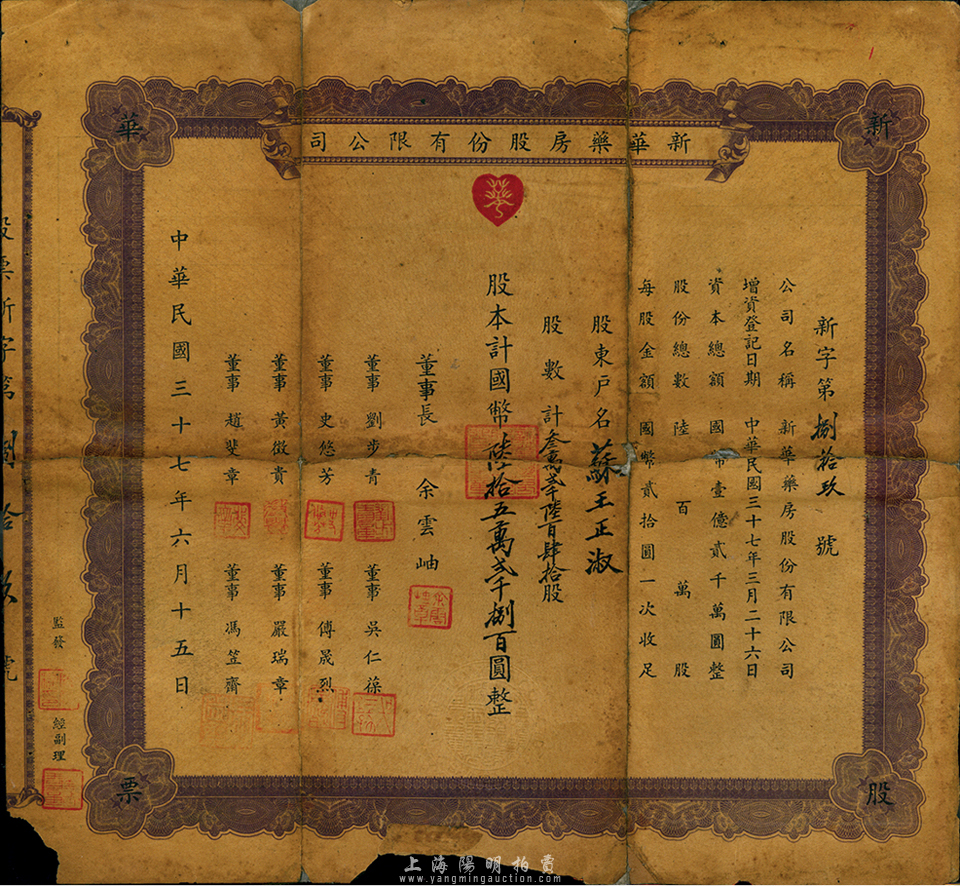 新華股票
新華藥房股份有限公司
新字第捌拾玖號
公司名稱 新華藥房股份有限公司
增資登記日期 中華民國三十七年三月二十六日
資本總額 國幣壹億貳千萬圓整
股份總數 陸百萬股
每股金額 國幣貳拾圓一次收足
股東戶名 蘇王正淑
股數計叁萬弍千陸百肆拾股
股本計國幣陸拾五萬弍千捌百圓整
董事長 余雲岫
董事 劉步青 董事 吳仁葆
董事 史悠芳 董事 傅晟烈
董事 黃徵貴 董事 嚴瑞章
董事 趙斐章 董事 馮笠齋
中華民國三十七年六月十五日
監發 經副理
股票新字第捌拾玖號
上海陽明拍賣
www.yangmingauction.com